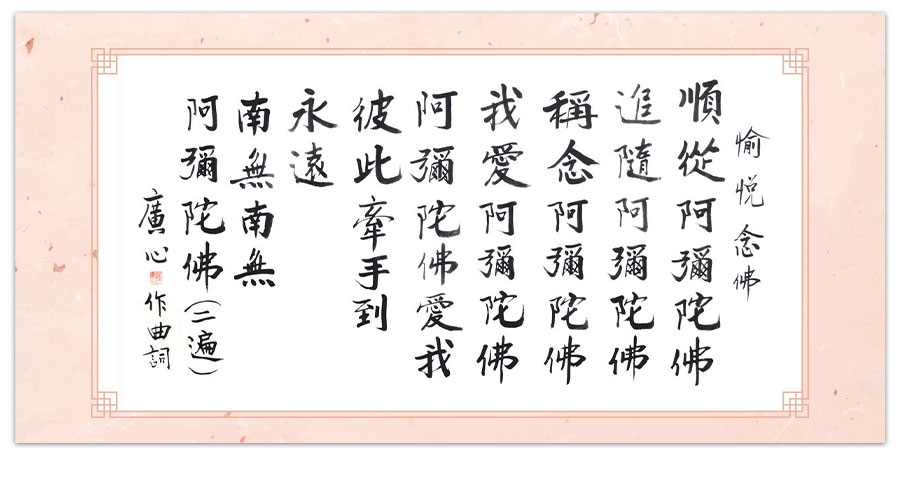 愉悅念佛
順從阿彌陀佛
追隨阿彌陀佛
稱念阿彌陀佛
我愛阿彌陀佛
阿彌陀佛愛我
彼此牽手到
永遠
南無南無
阿彌陀佛(二遍)
廣心 作曲詞